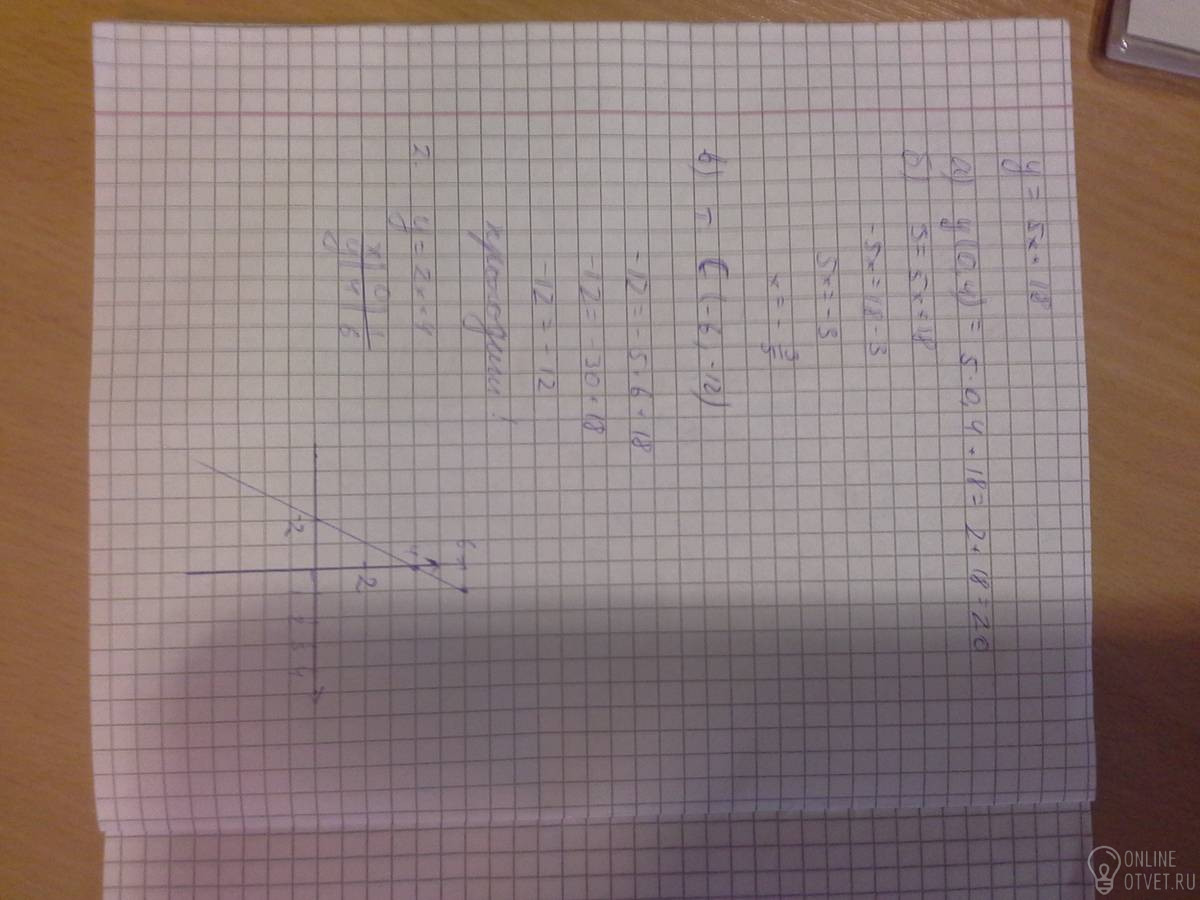 y = 5x + 18
а) y(0,4) = 5·0,4 + 18 = 2 + 18 = 20
б) 3 = 5x + 18
-5x = 18 - 3
5x = -3
x = -3/5
в) т. C (-6, -12)
-12 = -5·6 + 18
-12 = -30 + 18
-12 = -12
проходит!
2. y = 2x + 4
x | 0 | 1
y | 4 | 6
6
4
2
-2
1 2 3 4
ONLINE
OTVET.RU